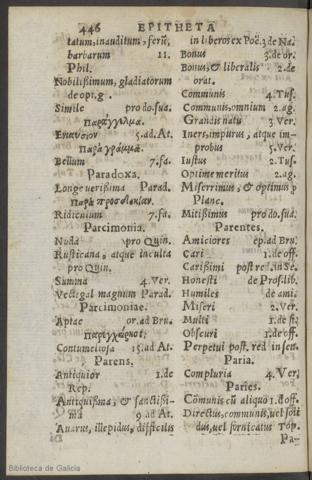 446 EPITHETA
tatum, inauditum, ferũ,
barbarum 11.
Phil.
Nobilißimum, gladiatorum
de opt. g.
Simile pro do. sua.
Παράγγελμα.
5. ad. At.
Παράγραμμα.
Bellum 7. fa.
Paradoxa.
Longe verißima Parad.
Παρὰ προσδοκίαν.
Ridiculum 7. fa.
Parcimonia.
Nuda pro Quin.
Rusticana, atque inculta
pro Quin.
Summa 4. Ver.
Vectigal magnum Parad.
Parcimoniae.
Aptae or. ad Bru.
Contumeliosa 15. ad At.
Parens.
Antiquior 1. de
Rep.
Antiquißima, & sanctißi-
ma 9 ad At.
Auarus, illepidus, difficilis
in liberos ex Poë. 3. de Na.
Bonus 3. de or.
Bonus, & liberalis 2. de
orat.
Communis 4. Tus.
Communis, omnium 2. ag.
Grandis natu 3. Ver.
Iners, impurus, atque im-
probus 5. Ver.
Iustus 2. Tus.
Optime meritus 2. ag.
Miserrimus, & optimus p
Planc.
Mitißimus pro do. sua.
Parentes.
Amiciores ep. ad Bru.
Cari 1. de off.
Carißimi post re d. in Se.
Honesti de Prof. lib.
Humiles de ami.
Miseri 2. Ver.
Multi 1. de fi.
Obscuri 1. de off.
Perpetui post. red in sen.
Paria.
Compluria 4. Ver.
Paries.
Cõmunis cũ aliquo 1. d off.
Directus, communis, uel soli
dus, uel fornicatus Top.
Pa-
Biblioteca de Galicia